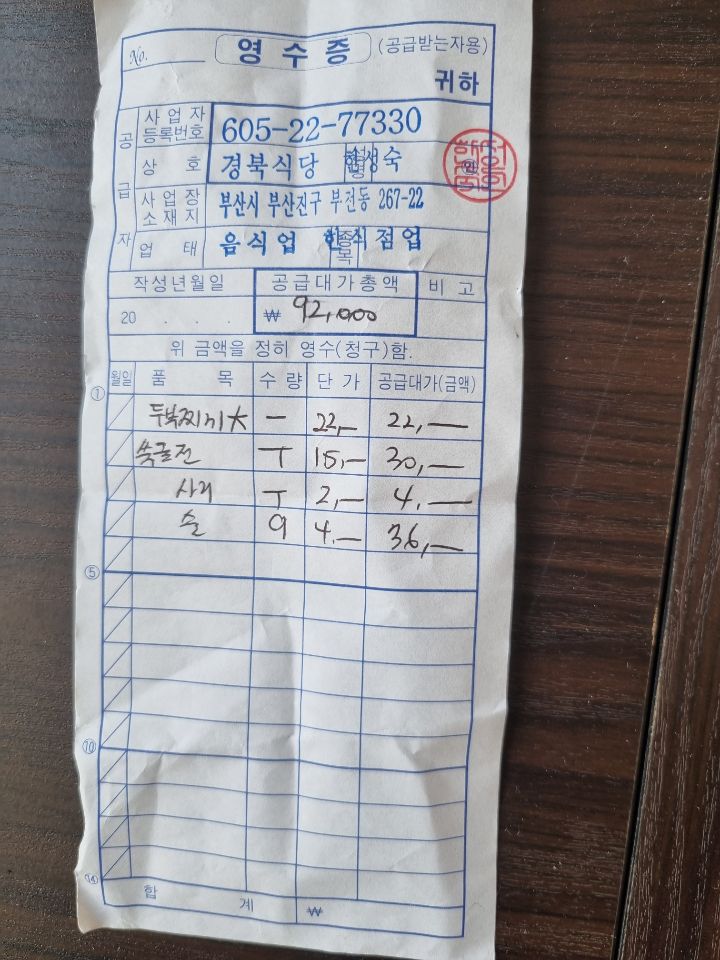 No. 영수증 (공급받는자용)
귀하
공급자
사업자등록번호 605-22-77330
상호 경북식당 성명 숙
사업장소재지 부산시 부산진구 부전동 267-22
업태 음식업 종목 한식점업
작성년월일 공급대가총액 비고
20 . . . ₩ 92,000
위 금액을 정히 영수(청구)함.
월일 품목 수량 단가 공급대가(금액)
① 두부찌개大 一 22,— 22,—
T 15,— 30,—
사리 T 2,— 4,—
술 9 4,— 36,—
⑤
⑩
⑭
합계 ₩